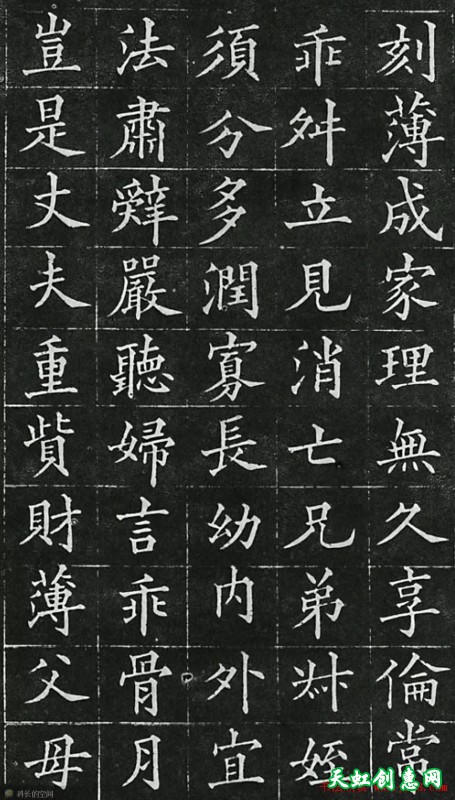 刻薄成家理無久享倫常
乖舛立見消亡兄弟叔姪
須分多潤寡長幼内外宜
法肅辭嚴聽婦言乖骨月
豈是丈夫重貲財薄父母
科长的空间
天虹创意网